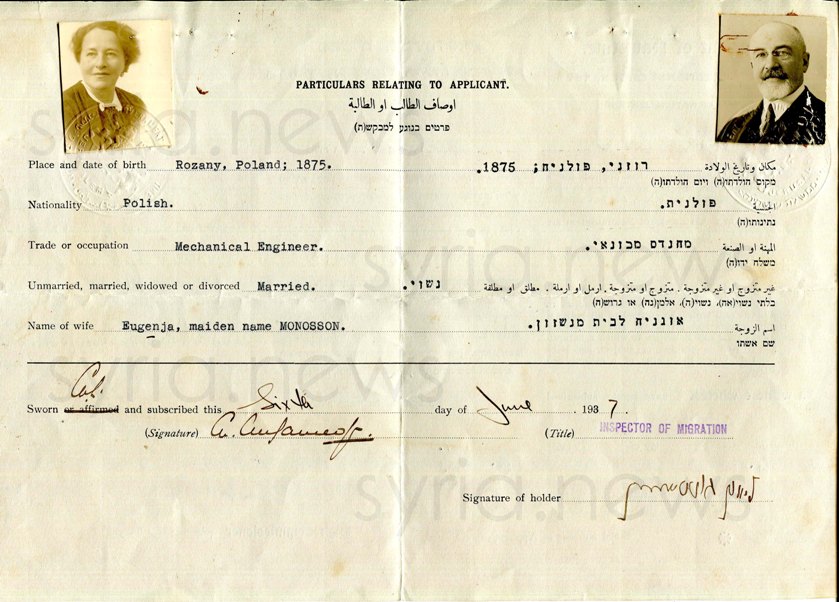 PARTICULARS RELATING TO APPLICANT.
اوصاف الطالب او الطالبة
פרטים בנוגע למבקש(ת)
Place and date of birth Rozany, Poland; 1875. רוזני, פולניה; 1875. مكان وتاريخ الولادة
מקום הולדתו(ה) ויום הולדתו(ה)
Nationality Polish. פולנית. الجنسية
נתינותו(ה)
Trade or occupation Mechanical Engineer. מהנדס מכונאי. المهنة او الصنعة
משלח ידו(ה)
Unmarried, married, widowed or divorced Married. נשוי. غير متزوج او غير متزوجة . متزوج او متزوجة . ارمل او ارملة . مطلق او مطلقة
בלתי נשוי(אה), נשוי(ה), אלמן(נה) או גרוש(ה)
Name of wife Eugenja, maiden name MONOSSON. אוגניה לבית מנשזון. اسم الزوجة
שם אשתו
Sworn or affirmed and subscribed this Sixth day of June 1937.
(Signature) (Title) INSPECTOR OF MIGRATION
Signature of holder
syria.news
syria.news
syria.news
syria.news
syria.news